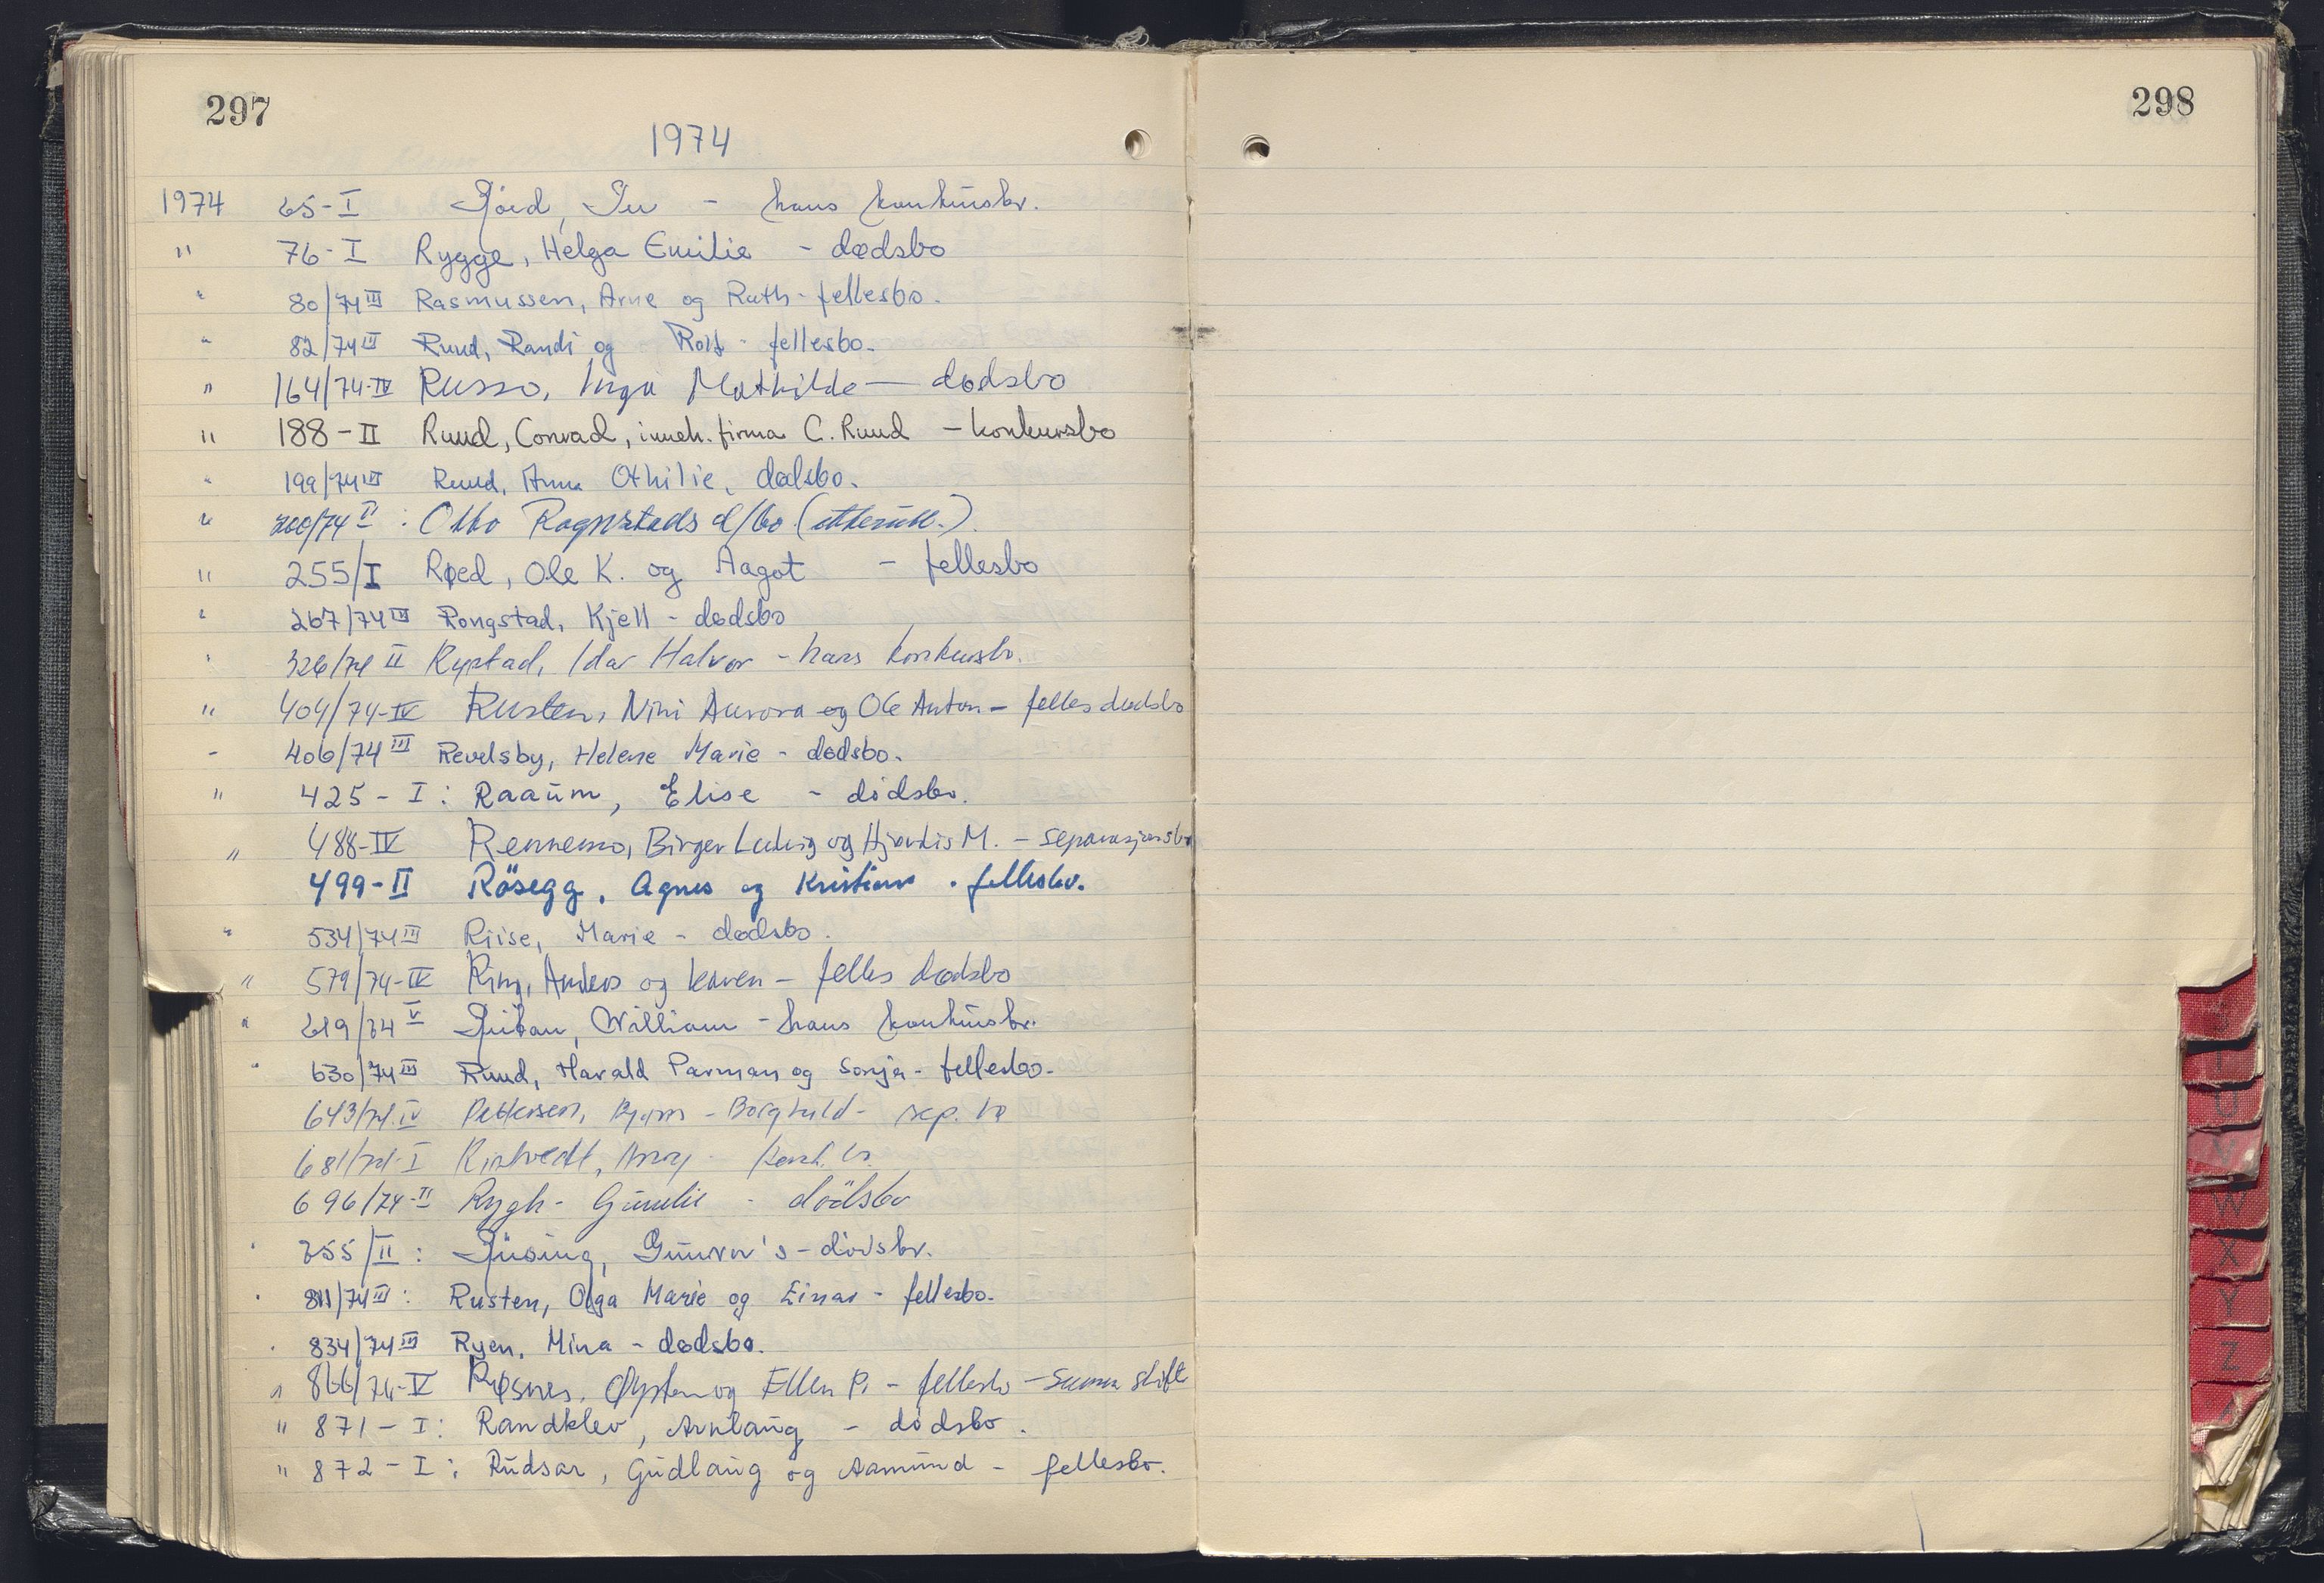 297
298
1974
1974 65-I Röed, - hans konkursbo.
" 76-I Rygge, Helga Emilie - dødsbo
" 80/74 III Rasmussen, Arne og Ruth - fellesbo.
" 82/74 III Ruud, Randi og Rolf - fellesbo.
" 164/74-IV Russo, Inga Mathilde - dødsbo
" 188-II Ruud, Conrad, inneh. firma C. Ruud - konkursbo
" 199/74 III Ruud, Anna Othilie, dødsbo.
" 200/74 : Otto d/bo
" 255/I Røed, Ole K. og Aagot - fellesbo
" 267/74 III Rongstad, Kjell - dødsbo
" 326/74 II Rystad, Idar Halvor - hans konkursbo.
" 404/74-IV Rusten, Nini Aurora og Ole Anton - felles dødsbo
- 406/74 III Revelsby, Helene Marie - dødsbo.
" 425-I: Raaum, Elise - dødsbo.
" 488-IV Rennemo, Birger Ludvig og Hjørdis M. - separasjonsbo
499-II Rösegg, Agnes og Kristian. fellesbo.
" 534/74 III Riise, Marie - dødsbo.
" 579/74-IV Anders og Karen - felles dødsbo
" 619/74 V William - hans konkursbo.
" 630/74 III Ruud, Harald Parman og Sonja - fellesbo.
643/74 IV Pettersen, - Borghild - sep. bo
681/74-I konk. bo.
696/74-II Rygh - Gunelie - dödsbo
" 755/II: Rüsing, Gunvor's - dödsbo.
" 811/74 III: Rusten, Olga Marie og Einar - fellesbo.
" 834/74 III Ryen, Mina - dødsbo.
" 866/74-IV Røsnes, Øystein og Ellen P. - fellesbo - summ. skifte
" 871-I: Randklev, Arnlaug - dødsbo.
" 872-I: Rudsar, Gudlaug og Aamund - fellesbo.
U
V
W
X
Y
Z